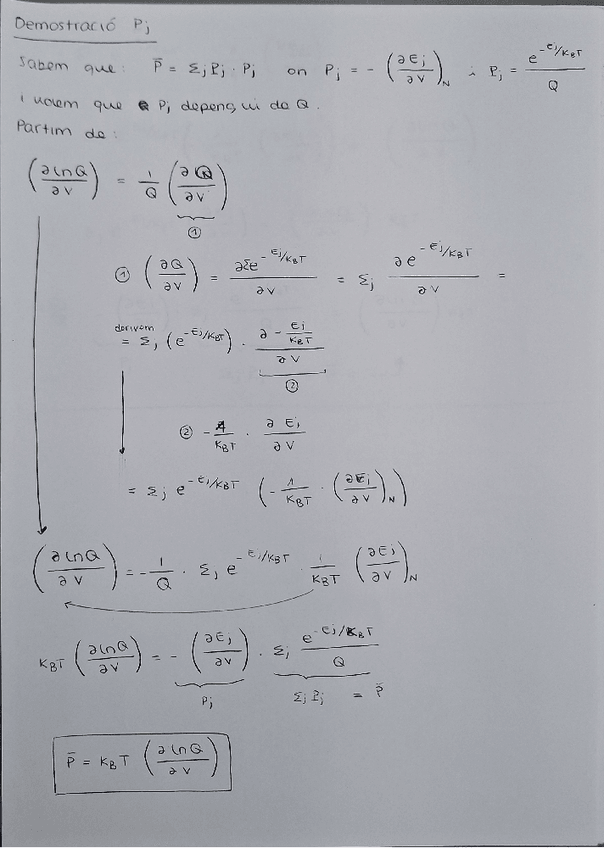 Demostració Pj
Sabem que: P̄ = Σj Pj · Pj on Pj = - (∂Ej/∂V)N i Pj = e^(-Ej/KBT) / Q
i volem que Pj depengui de Q.
Partim de:
(∂lnQ/∂V) = 1/Q (∂Q/∂V)
①
① (∂Q/∂V) = ∂Σe^(-Ej/KBT) / ∂V = Σj ∂e^(-Ej/KBT) / ∂V =
derivem
= Σj (e^(-Ej/KBT)) · (∂ - Ej/KBT) / ∂V
②
② - 1/KBT · ∂Ej/∂V
= Σj e^(-Ej/KBT) (- 1/KBT · (∂Ej/∂V)N)
(∂lnQ/∂V) = - 1/Q · Σj e^(-Ej/KBT) · 1/KBT (∂Ej/∂V)N
KBT (∂lnQ/∂V) = - (∂Ej/∂V) · Σj e^(-Ej/KBT) / Q
Pj Σj Pj = P̄
P̄ = KBT (∂lnQ/∂V)